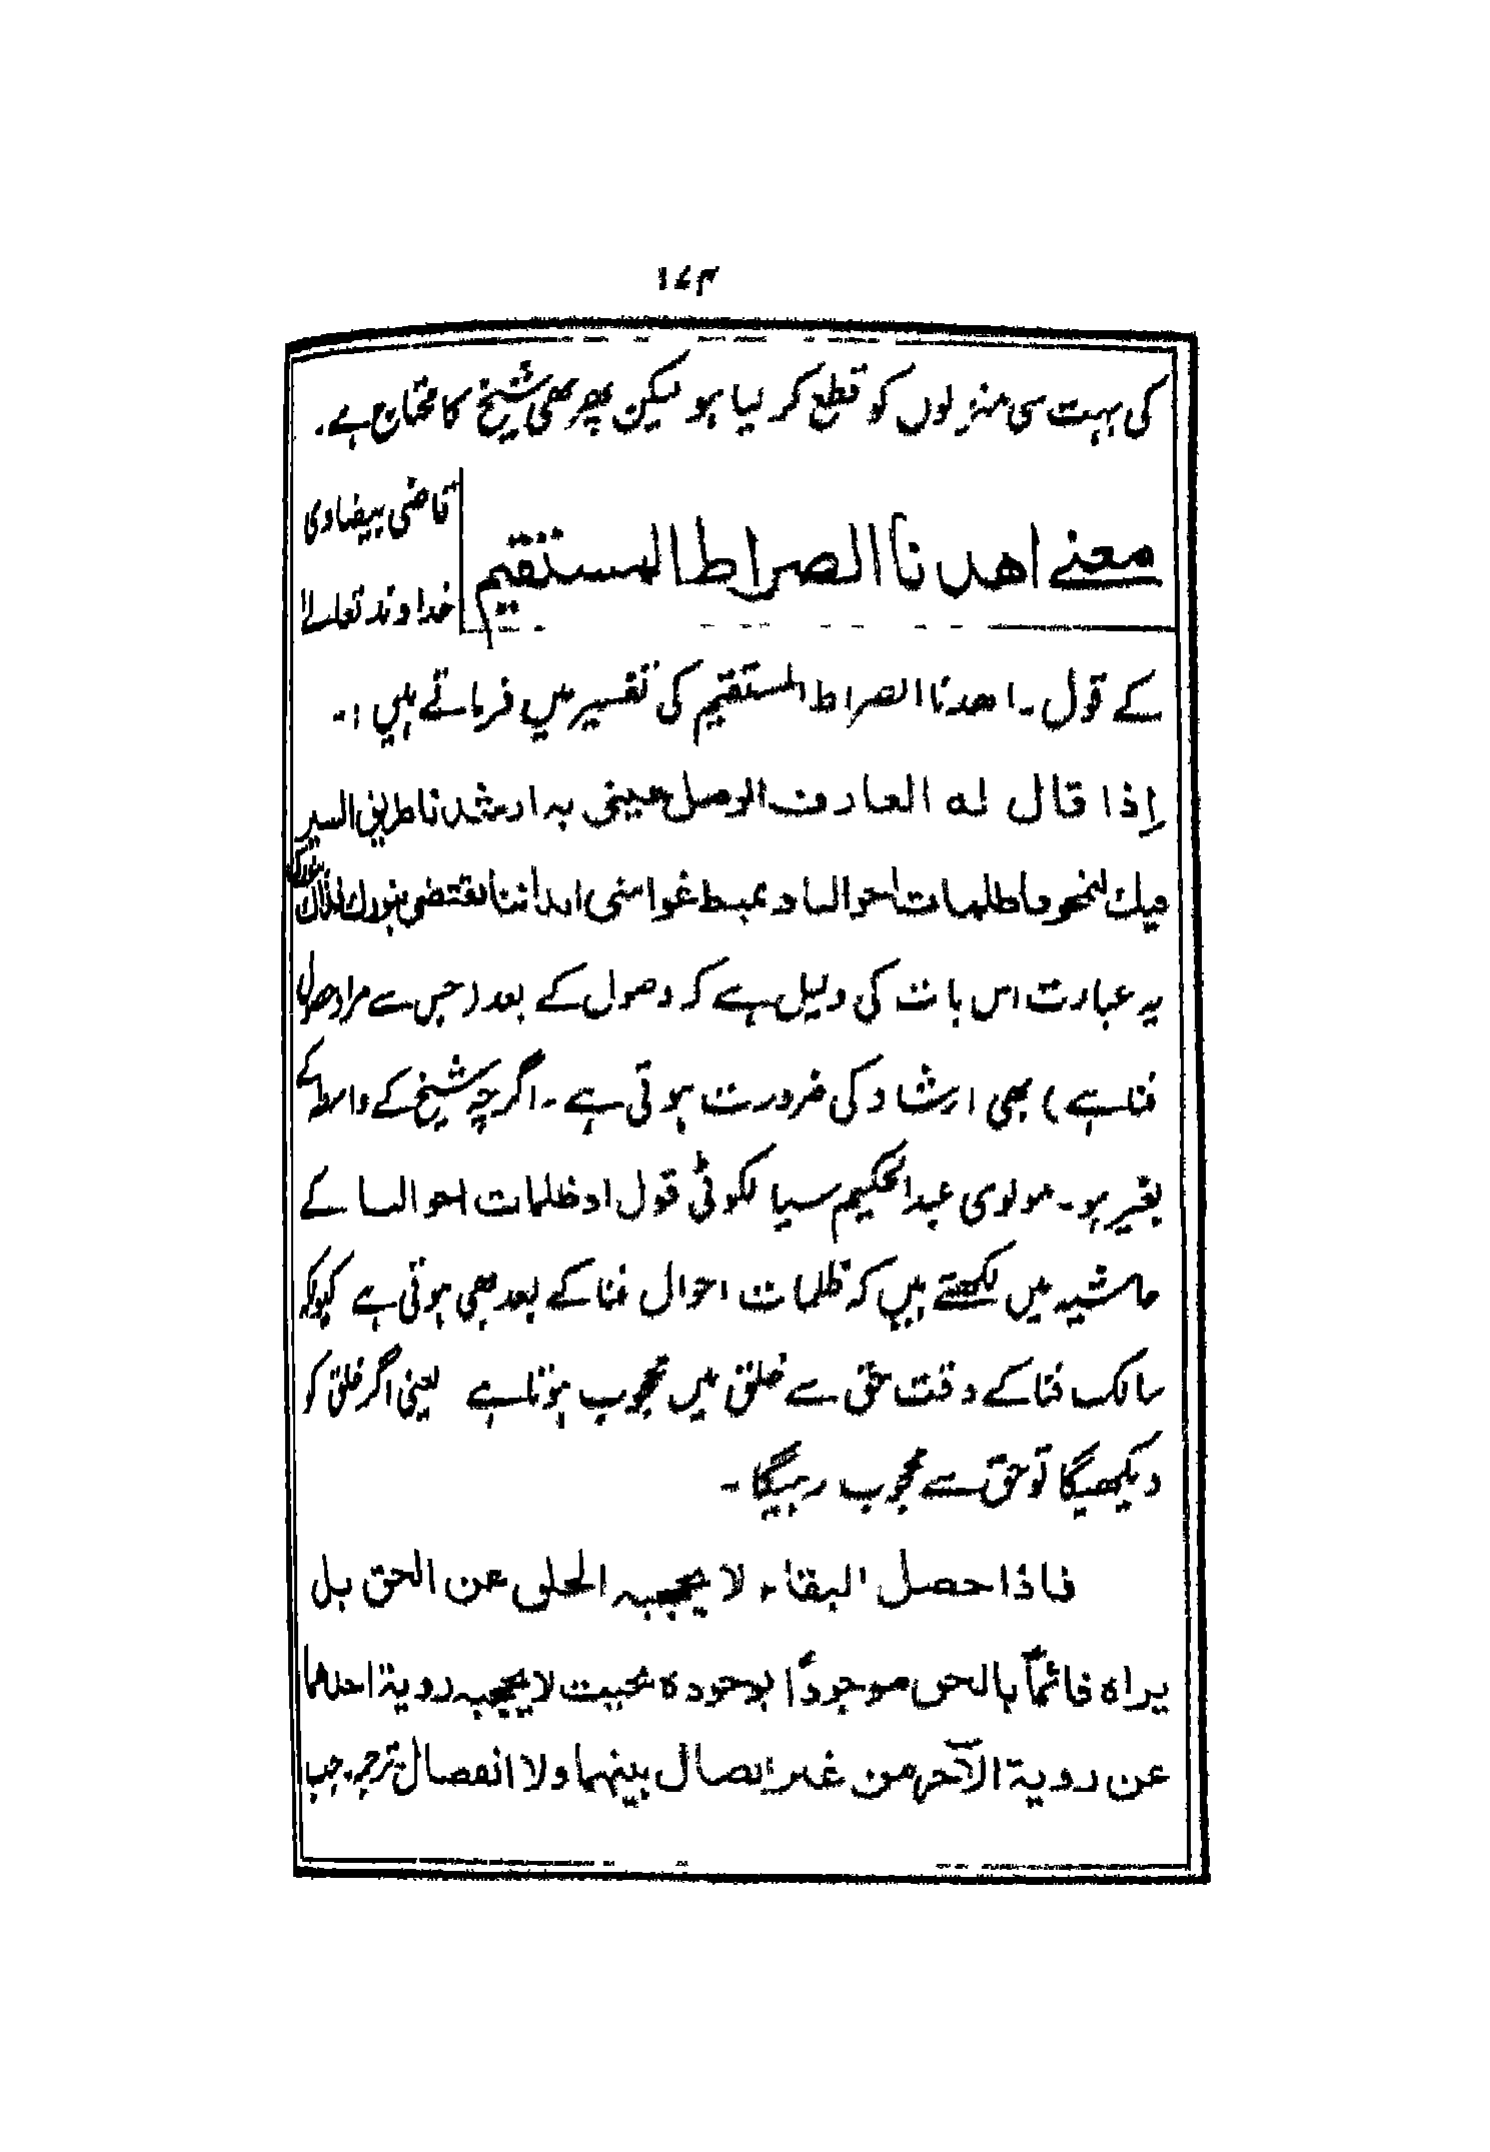 ۱۷۳
کی بہت سی منزلوں کو قطع کر لیا ہو لیکن پھر بھی شیخ کا محتاج ہے۔
معنے اھدنا الصراط المستقیم
قاضی بیضاوی
خداوند تعلےٰ
کے قول۔ اھدنا الصراط المستقیم کی تفسیر میں فرماتے ہیں :۔
إذا قال له العارف الوصل عینی به ارشدنا طریق السیر
فیك لتمحو ما ظلمات احوالنا و
یہ عبارت اس بات کی دلیل ہے کہ وصول کے بعد (جس سے مراد حصول
فنا ہے) بھی ارشاد کی ضرورت ہوتی ہے۔ اگرچہ شیخ کے واسطہ کے
بغیر ہو۔ مولوی عبدالحکیم سیالکوٹی قول او ظلمات احوالنا کے
حاشیہ میں لکھتے ہیں کہ ظلمات احوال فنا کے بعد بھی ہوتی ہے کیونکہ
سالک فنا کے وقت حق سے خلق میں محجوب ہوتا ہے یعنی اگر خلق کو
دیکھیگا تو حق سے محجوب رہیگا۔
فاذا حصل البقاء لا یحجبه الخلق عن الحق بل
یراه قائماً بالحق موجوداً بوجوده بحیث لا یحجبه رویة احدهما
عن رویة الآخر من غیر اتصال بینهما ولا انفصال ترجمہ۔ جب